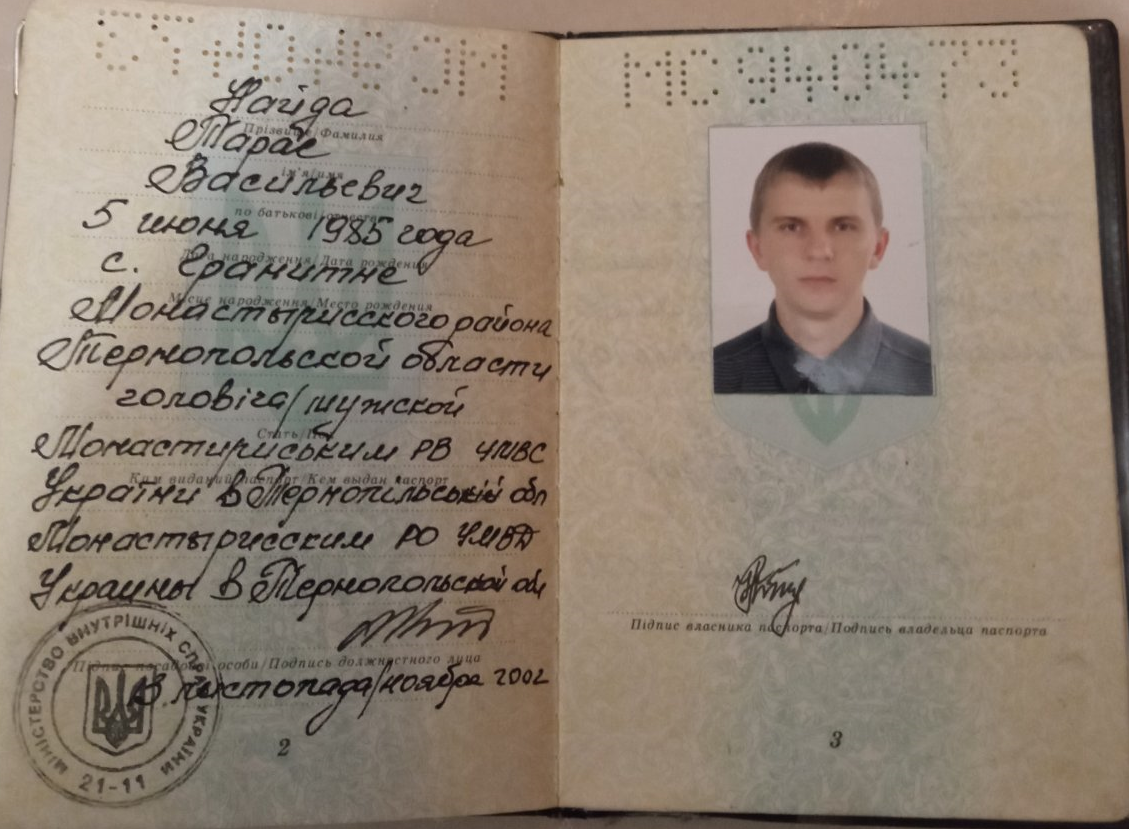 МС 940473
Прізвище/Фамилия
Тарас
ім'я/имя
Васильевич
по батькові/отчество
5 июня 1985 года
Дата народження/Дата рождения
с. Гранитне
Місце народження/Место рождения
Монастырисского района
Тернопольской области
чоловіча/мужской
Стать/Пол
Монастириським РВ УМВС
Ким виданий паспорт/Кем выдан паспорт
України в Тернопільській обл
Монастырисским РО УМВД
Украины в Тернопольской обл
Підпис посадової особи/Подпись должностного лица
листопада/ноября 2002
МІНІСТЕРСТВО ВНУТРІШНІХ СПРАВ УКРАЇНИ
21-11
2
МС 940473
Підпис власника паспорта/Подпись владельца паспорта
3